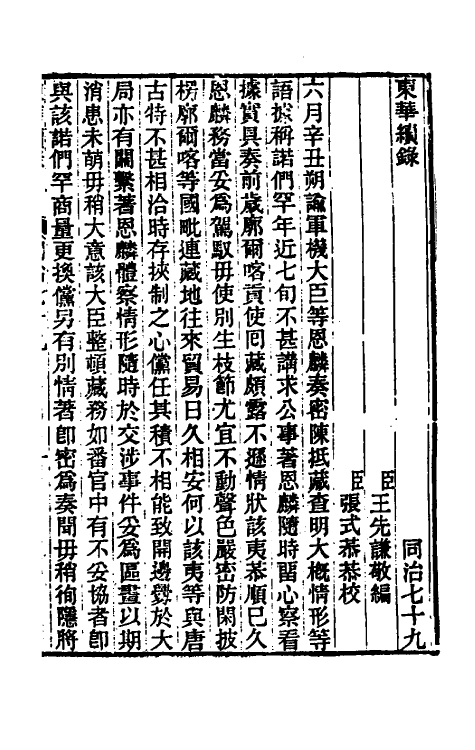 東華續錄 同治七十九
臣王先謙敬編
臣張式恭恭校
六月辛丑朔諭軍機大臣等恩麟奏密陳抵藏查明大概情形等
語據稱諾們罕年近七旬不甚講求公事著恩麟隨時留心察看
據實具奏前歲廓爾喀貢使回藏頗露不遜情狀該夷恭順已久
恩麟務當妥為駕馭毋使別生枝節尤宜不動聲色嚴密防閑披
楞廓爾喀等國毗連藏地往來貿易日久相安何以該夷等與唐
古特不甚相洽時存挾制之心儻任其積不相能致開邊釁於大
局亦有關繫著恩麟體察情形隨時於交涉事件妥為區畫以期
消患未萌毋稍大意該大臣整頓藏務如番官中有不妥協者即
與該諾們罕商量更換儻另有別情著卽密為奏聞毋稍徇隱將